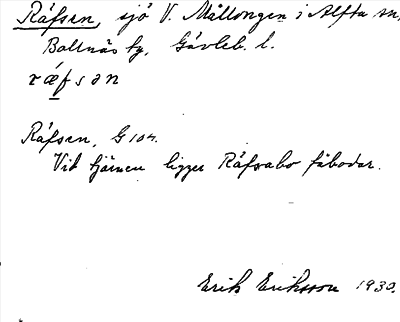 Råfsen, sjö V. Mållongen i Alfta sn,
Bollnäs tg, Gävleb. l.
ræfsən
Råfsen, G 104.
Vid tjärnen ligger Råfsabo fäbodar.
Erik Eriksson 1930.